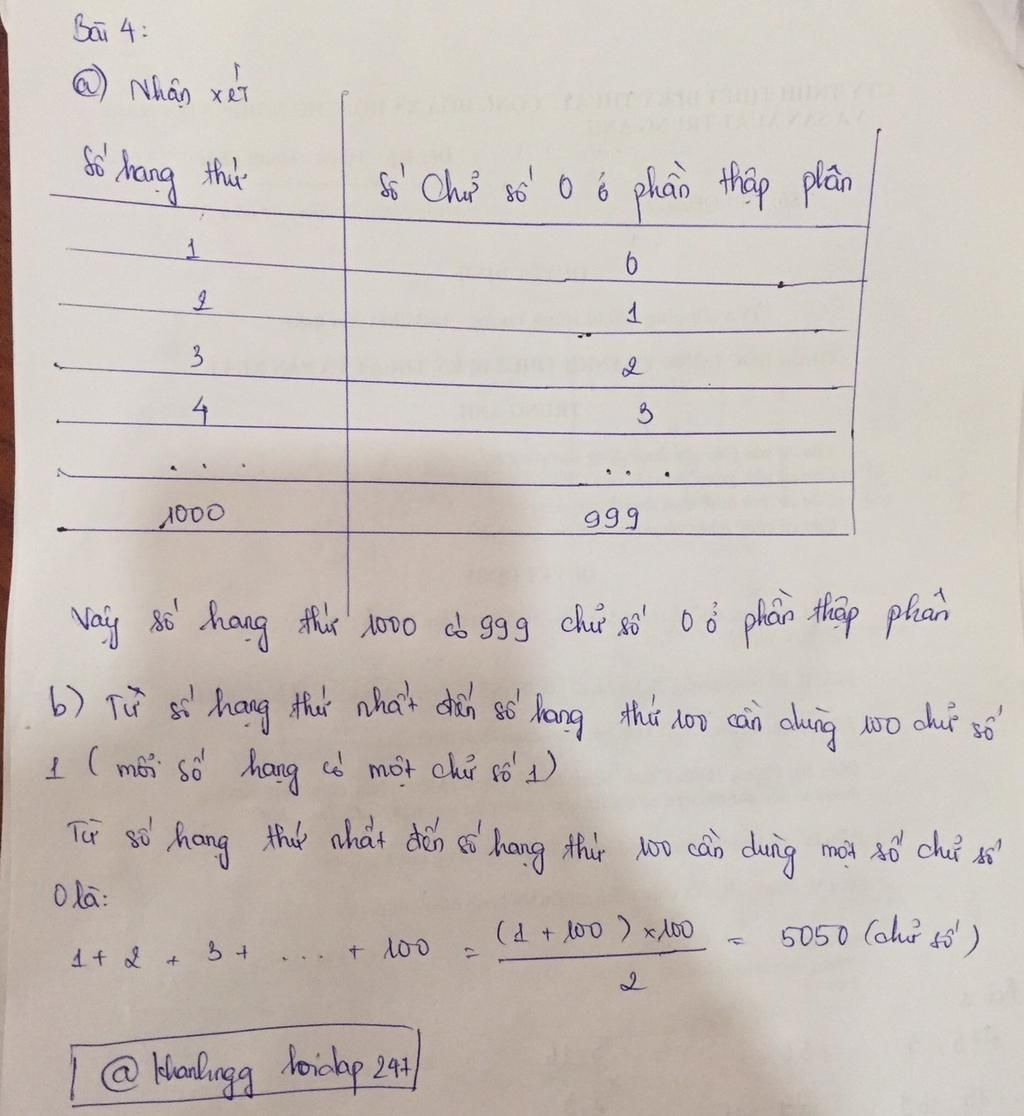 Bài 4:
a) Nhận xét
Số hạng thứ | số chữ số 0 ở phần thập phân
1 | 0
2 | 1
3 | 2
4 | 3
... | ...
1000 | 999
Vậy số hạng thứ 1000 có 999 chữ số 0 ở phần thập phân
b) Từ số hạng thứ nhất đến số hạng thứ 100 cần dùng 100 chữ số
1 ( mỗi số hạng có một chữ số 1)
Từ số hạng thứ nhất đến số hạng thứ 100 cần dùng một số chữ số
0 là:
1 + 2 + 3 + ... + 100 = (1 + 100) x 100 / 2 = 5050 (chữ số)
@ khanhngg hoidap 247